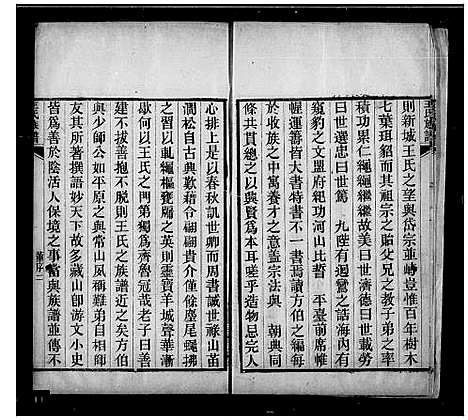 則新城王氏之望與岱宗並峙豈惟百年樹木
七葉珥貂而其祖宗之貽父兄之教子弟之率
積功累仁繩繩繼繼故美曰世濟德曰世載勞
曰世選忠曰世篤 九陛有迴鸞之誥海內有
窺豹之文盟府紀功河山比誓 平臺前席帷
幄運籌皆大書特書不一書焉讀方伯之編每
於收族之中寓養才之意蓋宗法與 朝典同
條共貫總之以與賢爲本耳嗟乎造物忌完人
心排上是以春秋譏世卿而周書誡世祿山苗
澗松自古興歎彼介倚翩翩貴介僅餘塵尾蠅拂
清之習以軋繩樞甕牖之英則靈寶羊城聲華漸
歇何以王氏之門第獨爲齊魯冠哉老子曰善
建不拔善抱不脫則王氏之族譜近之矣方伯
與少師公如平原之與常山夙稱難弟自相師
友其所著撰語妙天下故多藏山卽游文小史
皆爲善於陰活人保境之事當與族譜並傳不
王氏族譜
董序二